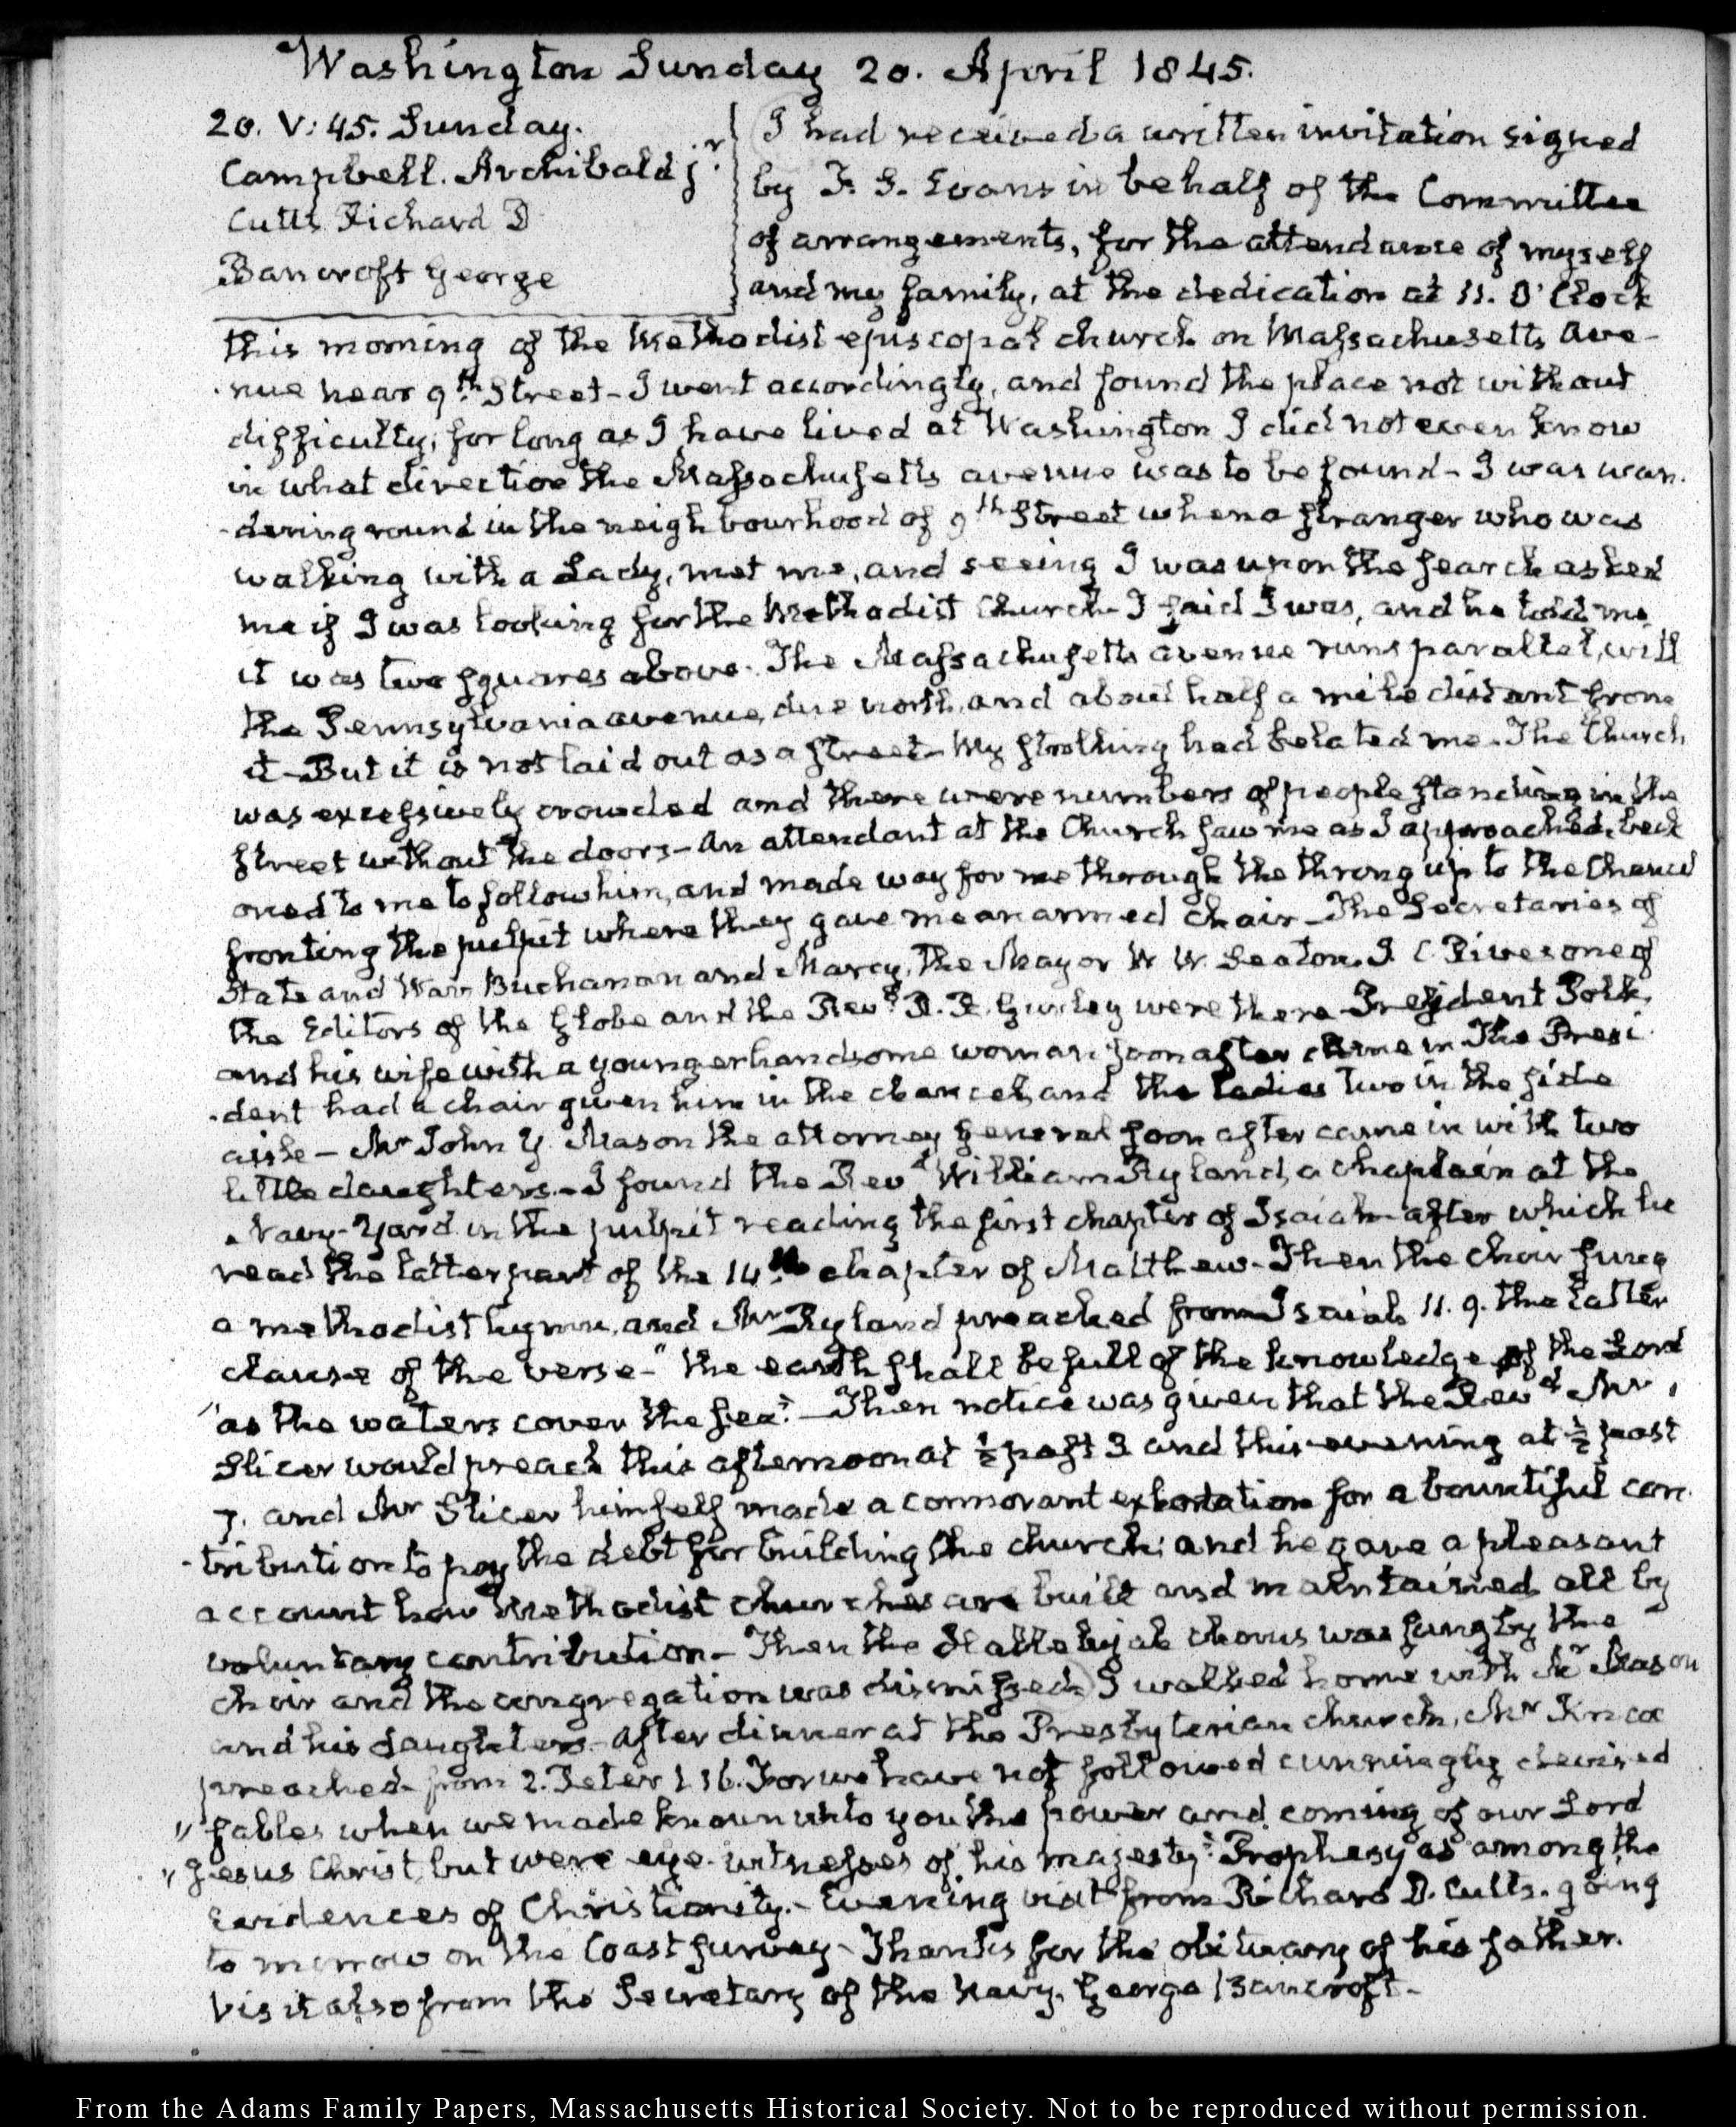 Washington Sunday 20. April 1845.
20. V: 45. Sunday.
Campbell. Archibald jr.
Cutts Richard D
Bancroft George
I had received a written invitation signed
by F. S. Evans in behalf of the Committee
of arrangements, for the attendance of myself
and my family, at the dedication at 11. O'Clock
this morning of the Methodist episcopal church on Massachusetts Ave-
nue near 9th. Street- I went accordingly, and found the place not without
difficulty; for long as I have lived at Washington I did not even know
in what direction the Massachusetts avenue was to be found- I was wan-
-dering round in the neighbourhood of 9th Street when a stranger who was
walking with a Lady, met me, and seeing I was upon the search asked
me if I was looking for the Methodist Church- I said I was, and he told me
it was two squares above. The Massachusetts avenue runs parallel, with
the Pennsylvania avenue, due north, and about half a mile distant from
it- But it is not laid out as a street- My strolling had belated me- The Church
was excessively crowded and there were numbers of people standing in the
street without the doors- An attendant at the Church saw me as I approached, beck
oned to me to follow him, and made way for me through the throng up to the Chancel
fronting the pulpit where they gave me an armed chair- The Secretaries of
State and War, Buchanan and Marcy, The Mayor W. W. Seaton. J. C Rives one of
the Editors of the Globe and the Revd. R. R. Gurley were there- President Polk,
and his wife with a younger handsome woman soon after came in- The Presi
-dent had a chair given him in the chancel, and the ladies two in the side
aisle- Mr John Y. Mason the attorney General soon after came in with two
little daughters- I found the Revd William Ryland, a chaplain at the
Navy-Yard in the pulpit reading the first chapter of Isaiah- after which he
read the latter part of the 14th. chapter of Matthew- Then the choir sung
a methodist hymn, and Mr Ryland preached from Isaiah 11. 9. the latter
clause of the verse- "the earth shall be full of the knowledge of the Lord
"as the waters cover the sea."- Then notice was given that the Revd Mr
Slicer would preach this afternoon at ½ past 3 and this evening at ½ past
7. and Mr Slicer himself made a cormorant exhortation for a bountiful con-
-tribution to pay the debt for building the church; and he gave a pleasant
account how Methodist churches are built and maintained all by
voluntary contribution- Then the Hallelujah chorus was sung by the
choir and the congregation was dismissed) I walked home with Mr Mason
and his daughters- After dinner at the Presbyterian church, Mr Knox
preached- from 2. Peter 1 16. For we have not followed cunningly devised
"fables when we made known unto you the power and coming of our Lord
"Jesus Christ, but were eye-witnesses of his majesty." Prophesy as among the
evidences of Christianity.- Evening visit from Richard D. Cutts. going
to morrow on the Coast survey- Thanks for the obituary of his father.
Visit also from the Secretary of the Navy, George Bancroft-
From the Adams Family Papers, Massachusetts Historical Society. Not to be reproduced without permission.